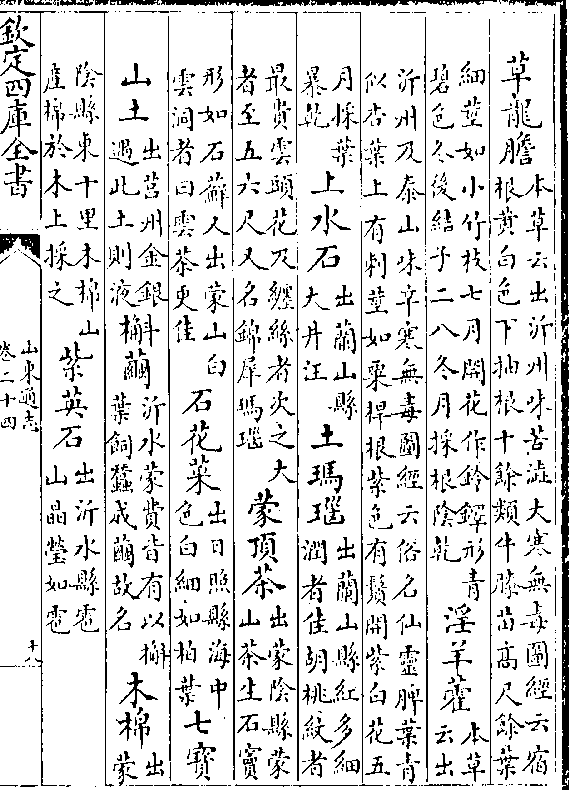 草龍膽本草云出沂州味苦澁大寒無毒圖經云宿
根黄白色下抽根十餘類牛膝苗高尺餘葉
細莖如小竹枝七月開花作鈴鐸形青
碧色冬後結子二八冬月採根陰乾
淫羊藿本草
云出
沂州及泰山味辛寒無毒圖經云俗名仙靈脾葉青
似杏葉上有刺莖如粟稈根紫色有鬚開紫白花五
月採葉
暴乾
上水石出蘭山縣
大井汪
土瑪瑙出蘭山縣紅多細
潤者佳胡桃紋者
最貴雲頭花及纏絲者次之大
者至五六尺又名錦犀瑪瑙
蒙頂茶出蒙陰縣蒙
山茶生石竇
形如石蘚又出蒙山白
雲洞者曰雲茶更佳
石花菜出日照縣海中
色白細如柏葉
七寶
山土出莒州金銀斗
過此土則液
槲繭沂水蒙費皆有以槲
葉飼蠶成繭故名
木棉出
蒙
陰縣東十里木棉山
産棉於木上採之
紫英石出沂水縣雹
山晶瑩如雹
欽定四庫全書
山東通志
卷二十四
十八